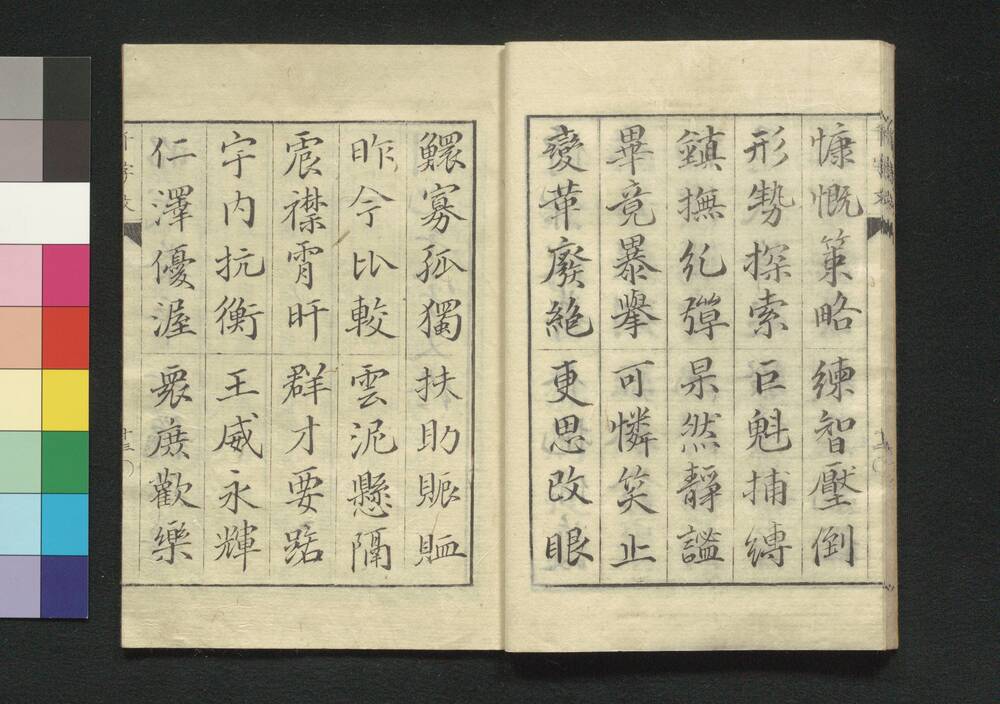 慷慨策略練智壓倒
形勢探索巨魁捕縛
鎮撫糺彈果然靜謐
畢竟暴擧可憐笑止
變革廢絕更思改眼
鰥寡孤獨扶助賑賉
昨今比較雲泥懸隔
震襟霄旰群才要路
宇內抗衡王威永輝
仁澤優渥衆庶歡樂